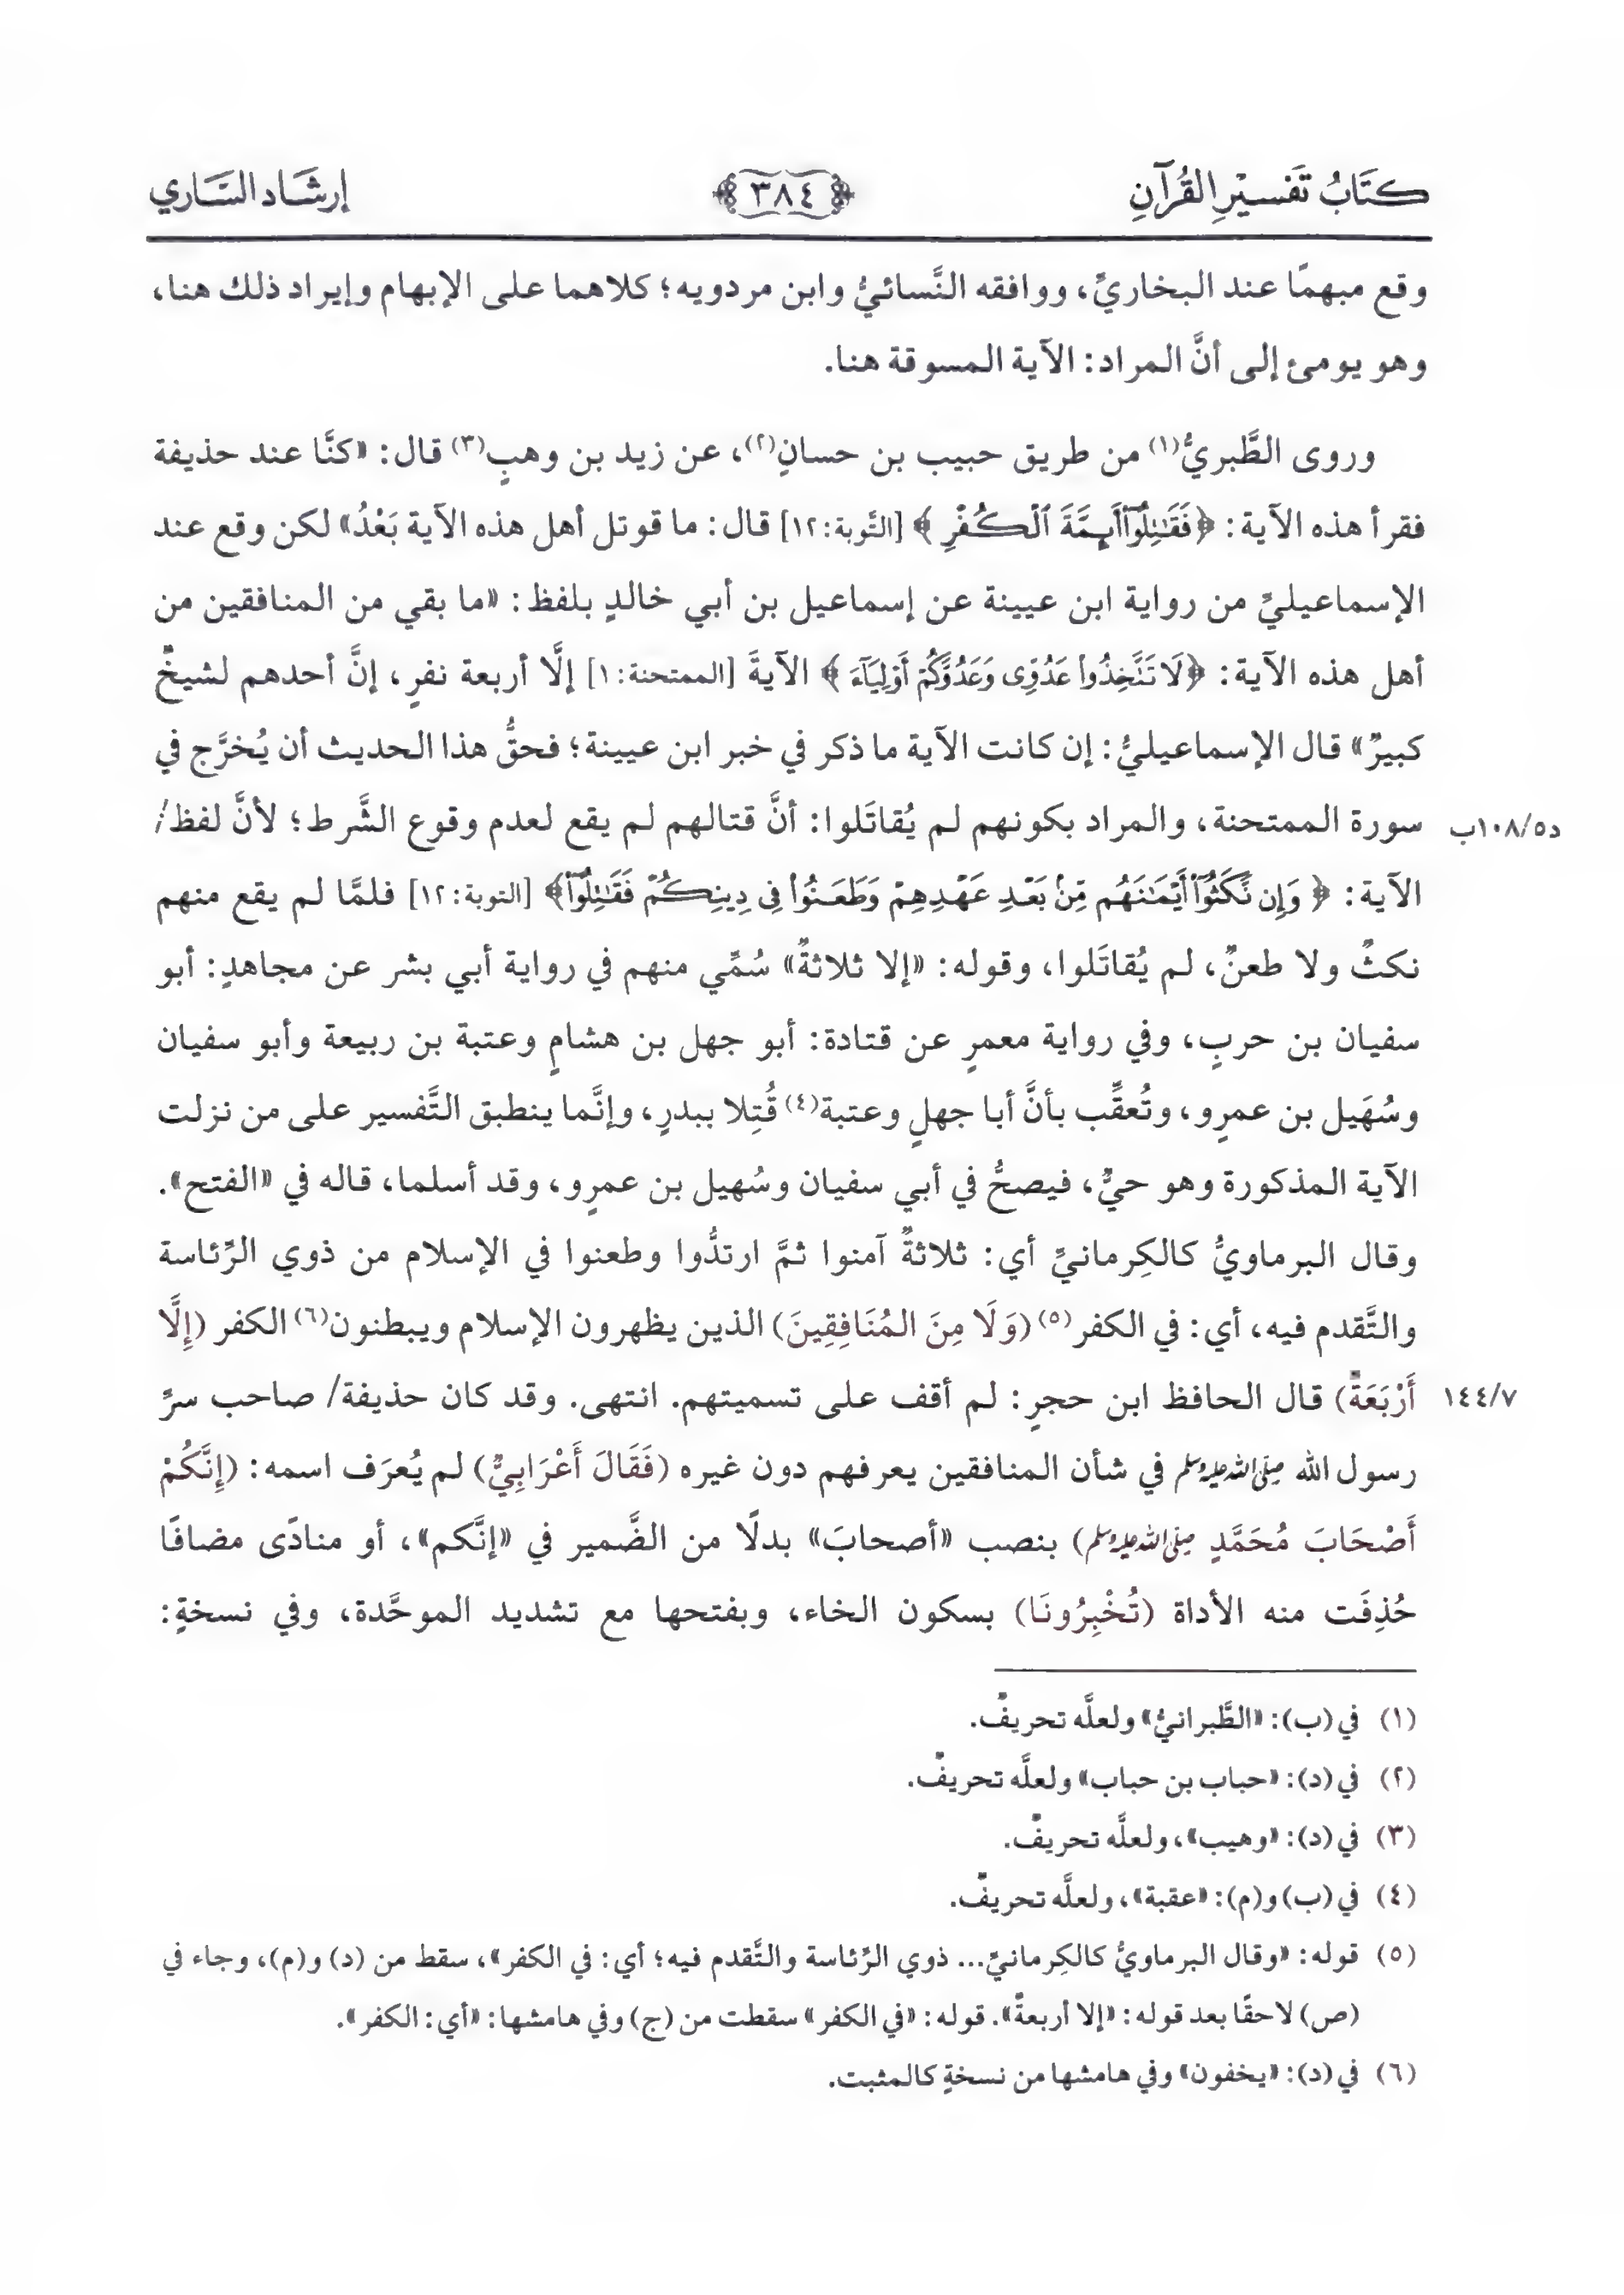 كِتَابُ تَفْسِيْرِ القُرْآنِ
٣٨٤
إرشَاد السَّاري
وقع مبهمًا عند البخاريِّ، ووافقه النَّسائيُّ وابن مردويه؛ كلاهما على الإبهام وإيراد ذلك هنا،
وهو يومئ إلى أنَّ المراد: الآية المسوقة هنا.
وروى الطَّبريُّ(١) من طريق حبيب بن حسانٍ(٢)، عن زيد بن وهبٍ(٣) قال: «كنَّا عند حذيفة
فقرأ هذه الآية: ﴿فَقَٰتِلُوٓا۟ أَئِمَّةَ ٱلْكُفْرِ﴾ [التَّوبة: ١٢] قال: ما قوتل أهل هذه الآية بَعْدُ» لكن وقع عند
الإسماعيليِّ من رواية ابن عيينة عن إسماعيل بن أبي خالدٍ بلفظ: «ما بقي من المنافقين من
أهل هذه الآية: ﴿لَا تَتَّخِذُوا۟ عَدُوِّى وَعَدُوَّكُمْ أَوْلِيَآءَ﴾ الآيةَ [الممتحنة: ١] إلَّا أربعة نفرٍ، إنَّ أحدهم لشيخٌ
كبيرٌ» قال الإسماعيليُّ: إن كانت الآية ما ذكر في خبر ابن عيينة؛ فحقُّ هذا الحديث أن يُخرَّج في
سورة الممتحنة، والمراد بكونهم لم يُقاتَلوا: أنَّ قتالهم لم يقع لعدم وقوع الشَّرط؛ لأنَّ لفظ/
د١٠٨/٥ب
الآية: ﴿وَإِن نَّكَثُوٓا۟ أَيْمَٰنَهُم مِّنۢ بَعْدِ عَهْدِهِمْ وَطَعَنُوا۟ فِى دِينِكُمْ فَقَٰتِلُوٓا۟﴾ [التوبة: ١٢] فلمَّا لم يقع منهم
نكثٌ ولا طعنٌ، لم يُقاتَلوا، وقوله: «إلا ثلاثةٌ» سُمِّي منهم في رواية أبي بشر عن مجاهدٍ: أبو
سفيان بن حربٍ، وفي رواية معمرٍ عن قتادة: أبو جهل بن هشامٍ وعتبة بن ربيعة وأبو سفيان
وسُهَيل بن عمرٍو، وتُعقِّب بأنَّ أبا جهلٍ وعتبة(٤) قُتِلا ببدرٍ، وإنَّما ينطبق التَّفسير على من نزلت
الآية المذكورة وهو حيٌّ، فيصحُّ في أبي سفيان وسُهيل بن عمرٍو، وقد أسلما، قاله في «الفتح».
وقال البرماويُّ كالكِرمانيِّ أي: ثلاثةٌ آمنوا ثمَّ ارتدُّوا وطعنوا في الإسلام من ذوي الرِّئاسة
والتَّقدم فيه، أي: في الكفر(٥) (وَلَا مِنَ المُنَافِقِينَ) الذين يظهرون الإسلام ويبطنون(٦) الكفر (إِلَّا
أَرْبَعَةٌ) قال الحافظ ابن حجرٍ: لم أقف على تسميتهم. انتهى. وقد كان حذيفة/ صاحب سرِّ
١٤٤/٧
رسول الله ﷺ في شأن المنافقين يعرفهم دون غيره (فَقَالَ أَعْرَابِيٌّ) لم يُعرَف اسمه: (إِنَّكُمْ
أَصْحَابَ مُحَمَّدٍ ﷺ) بنصب «أصحابَ» بدلًا من الضَّمير في «إنَّكم»، أو منادًى مضافًا
حُذِفَت منه الأداة (تُخْبِرُونَا) بسكون الخاء، وبفتحها مع تشديد الموحَّدة، وفي نسخةٍ:
(١) في (ب): «الطَّبرانيُّ» ولعلَّه تحريفٌ.
(٢) في (د): «حباب بن حباب» ولعلَّه تحريفٌ.
(٣) في (د): «وهيب»، ولعلَّه تحريفٌ.
(٤) في (ب) و(م): «عقبة»، ولعلَّه تحريفٌ.
(٥) قوله: «وقال البرماويُّ كالكِرمانيِّ... ذوي الرِّئاسة والتَّقدم فيه؛ أي: في الكفر»، سقط من (د) و(م)، وجاء في
(ص) لاحقًا بعد قوله: «إلا أربعةٌ». قوله: «في الكفر» سقطت من (ج) وفي هامشها: «أي: الكفر».
(٦) في (د): «يخفون» وفي هامشها من نسخةٍ كالمثبت.